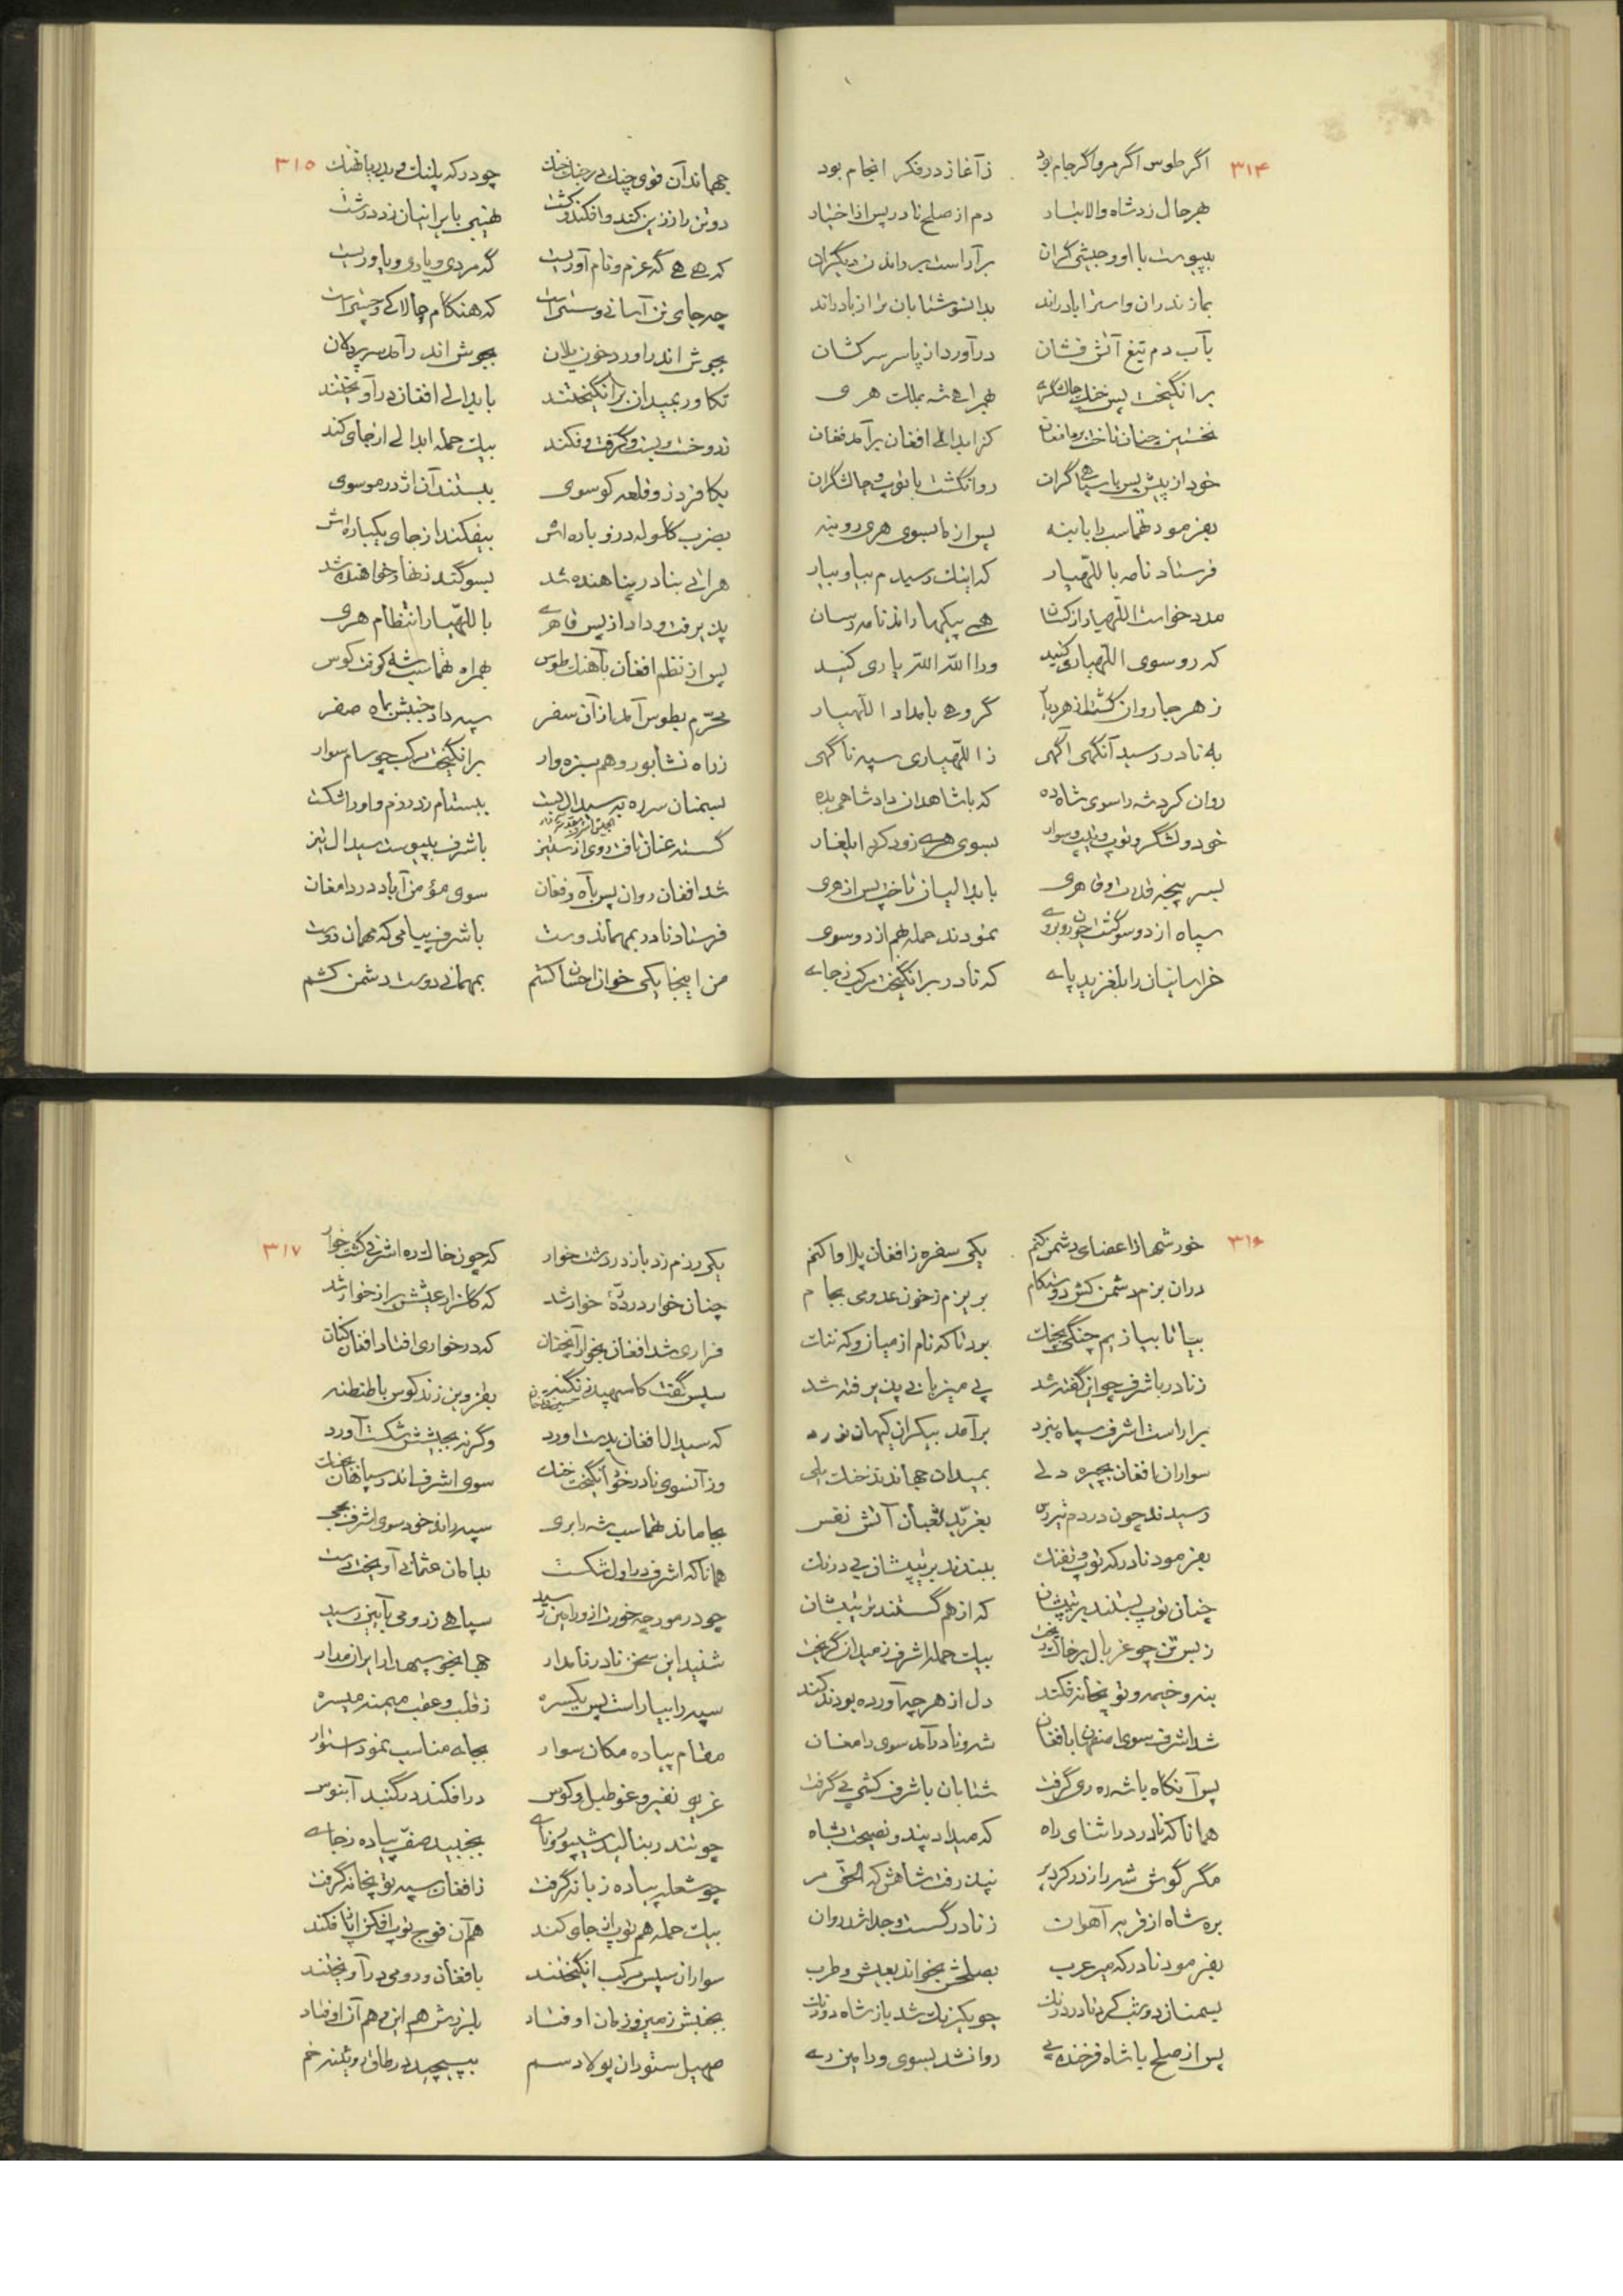 ۳۱۴
اگر طوس اگر مرو اگر جام بود ز آغاز در فکر انجام بود
بهر حال نزد شاه والا نژاد دم از صلح نادر پس از اختیاد
به پیوست با او و جیشی گران بر آراست دیگران
بمازندران و استراباد راند بدانسو شتابان تر از باد راند
بآب دم تیغ آتش فشان درآورد از پا سر سرکشان
برانگیخت پس خنک چالشگری بهمراهی شه بملک هری
نخستین چنان تاخت بر افغان کز ابدالی افغان برآمد فغان
خود از پیش و پس با سپاهی گران روان گشت با توپ و چالشگران
بفرمود تهماسب را با بنه پس از ما بسوی هری رو بنه
فرستاد نامه باللّهیار که اینک رسیدم بیا و بیار
مدد خواست اللّهیار از کسان همی پیکها راند نامه رسان
که رو سوی اللّهیاری کنید ورا اللّه اللّه یاری کنید
ز هر جا روان گشتند هر دیار گروهی بامداد اللّهیار
به نادر رسید آنگهی آگهی ز اللّهیاری سپه ناگهی
روان کرد شه را سوی شاه ده که با شاهدان داد شاهی بده
خود و لشگر و توپ و پیل و سوار بسوی هری زود کرد ایلغار
بسر پنجه قدرت و قاهری بابدالیان تاخت پس از هری
سپاه از دو سو گشت چون روبروی نمودند حمله هم از دو سوی
خراسانیان را بلغزید پای که نادر برانگیخت مرکب ز جای
۳۱۵
جهاند آن قوی چنک بر خنک چو در که پلنک و بدریا نهنک
دو تن را ز زین کند و افکند و کشت نهیبی بایرانیان زد درشت
که هی هی گه عزم و نام آوریست گه مردی و یاری و یاوریست
چه جای تن آسانی و سستی است که هنگام چالاکی و چستی است
بجوش اندر آورد خون یلان بجوش اندر آمد سر پردلان
تکاور بمیدان برانگیختند بابدالی افغان درآویختند
بدوخت و ببست و گرفت و فکند بیک حمله ابدالی از جای کند
یکا فرد ز و قلعه کوسوی ببستند آن اژدر موسوی
بضرب گلوله در و باره اش بیفکند از جای یکباره اش
هراتی بنادر پناهنده شد بسوگند زنهار خواهنده شد
پذیرفت و داد از پس قاهری باللّهیار انتظام هری
پس از نظم افغان بآهنک طوس بهمراه تهماسب شه کوفت کوس
محرّم بطوس آمد از آن سفر سپه داد جنبش بماه صفر
ز راه نشابور و هم سبزه وار برانگیخت مرکب چو سام سوار
بسمنان سر ره به سیدال بست ببستام زد رزم و او را شکست
گسسته عنان تافت روی از ستیز باشرف بپیوست سیدال نیز
شد افغان روان پس بآه و فغان سوی مؤمن آباد در دامغان
فرستاد نادر بمهماندوست باشرف پیامی که مهمان دوست
من اینجا یکی خوان احسان کشم بمهمانی دوست دشمن کشم
۳۱۶
خورشها از اعضای دشمن کنم یکی سفره ز افغان پلاوا کنم
در آن بزم دشمن کش دوستکام بریزم ز خون عدو می بجام
بیا تا بیازیم چنگی بچنک بود تا که نام از میان و که ننک
ز نادر باشرف چو این گفته شد پی میزبانی پذیرفته شد
برآراست اشرف سپاه نبرد برآمد بیکران کیهان نورد
سواران افغان بچیره دلی بمیدان جهاندند خنک یلی
رسیدند چون در دم تیررس بغرّید ثعبان آتش نفس
بفرمود نادر که توپ و تفنک ببندند بر تیپشان بی درنک
چنان توپ بستند بر تیپشان که از هم گسستند ترتیبشان
ز بس تن چو غربال بر خاک ریخت بیک حمله اشرف ز میدان گریخت
بنه و خیمه و توپخانه فکند دل از هر چه آورده بودند کند
شد اشرف سوی اصفهان با افغان شه و نادر آمد سوی دامغان
پس آنگاه با شه ره ری گرفت شتابان باشرف کشی پی گرفت
همانا که نادر در اثنای راه که میداد پند و نصیحت بشاه
مگر گوش شه را ز در کرد پر نپذرفت شاهش که الحقّ مر
بره شاه از فر بر آهوان ز نادر گسست و جدا شد روان
بفرمود نادر که میر عرب بصلحش بخواند بعیش و طرب
بسمنان دو شب کرد نادر درنک چو یکرنک شد باز شاه دورنک
پس از صلح با شاه فرخنده پی روان شد بسوی ورامین ری
۳۱۷
یکی رزم زد باز در دشت خوار که چون خاک ره اشرفی گشت خوار
چنان خوار در درّهٔ خوار شد که گلزار عیشش پر از خوار شد
فراری شد افغان بخوار آنچنان که در خواری افتاد افغان کنان
سپس گفت کاسپهبد نگنه بقزوین زند کوس با طنطنه
که سیدال افغان بدست آورد وگرنه بجیشش شکست آورد
وز آنسوی نادر خود انگیخت خنک سوی اشرف اندر سپاهان بجنک
بجا ماند طهماسب شه را بری سپه راند خود سوی اشرف بجی
همانا که اشرف در اول شکست بدامان عثمانی آویخت دست
چو در مورچه خورت از ورامین رسید سپاهی ز رومی بآیین رسید
شنید این سخن نادر نامدار جهانجو سپهدار ایران مدار
سپه را بیاراست پس یکسره ز قلب و عقب میمنه میسره
مقام پیاده مکان سوار بجای مناسب نمود استوار
غریو نفیر و غو طبل و کوس درافکند در گنبد آبنوس
چو تندر بنالید شیپور و نای بجنبید صفّ پیاده ز جای
چو شعله پیاده زبانه گرفت ز افغان سپه توپخانه گرفت
بیک حمله هم توپ از جای کند هم آن فوج توپ افکن از پا فکند
سواران سپس مرکب انگیختند بافغان و رومی درآویختند
بجنبش زمین و زمان اوفتاد بلرزش هم این و هم آن اوفتاد
صهیل ستوران پولاد سم بپیچید در طاق رویینه خم